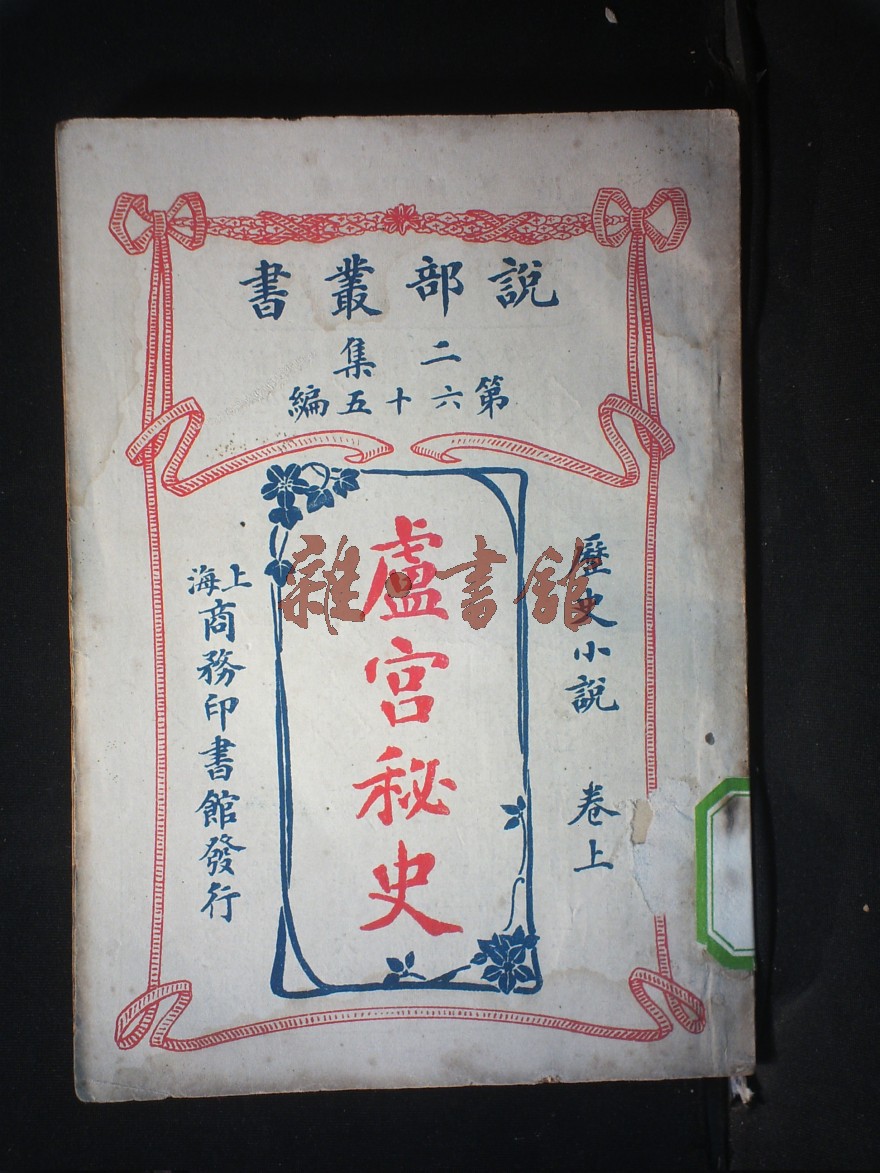 說部叢書
二集
第六十五編
歷史小說 卷上
盧宮秘史
上海商務印書館發行
雜·書館